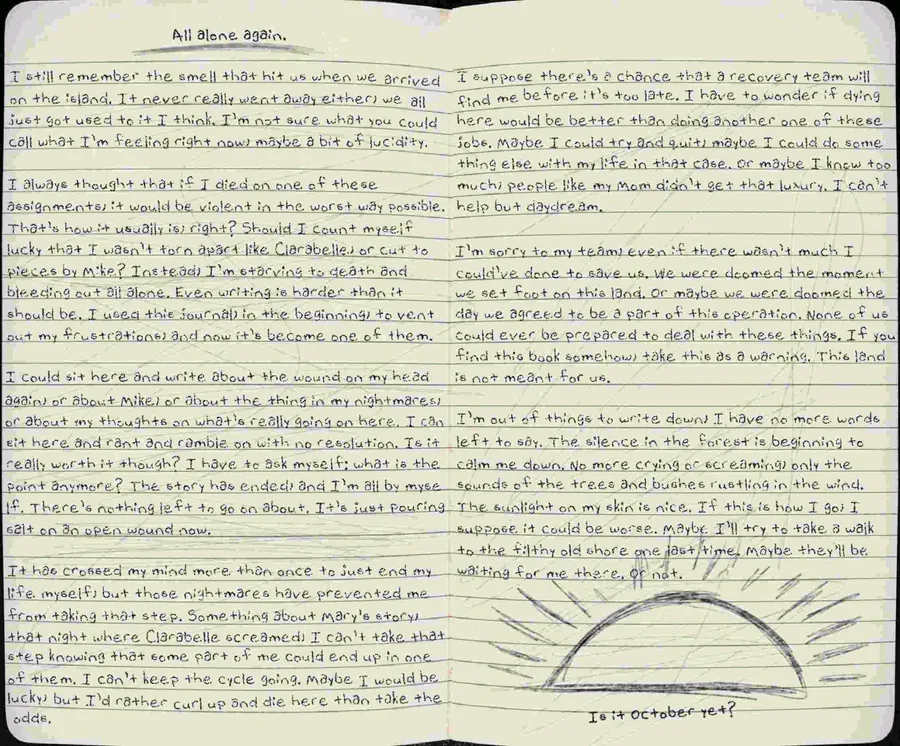 All alone again.
I still remember the smell that hit us when we arrived
on the island. It never really went away either, we all
just got used to it I think. I'm not sure what you could
call what I'm feeling right now, maybe a bit of lucidity.
I always thought that if I died on one of these
assignments, it would be violent in the worst way possible.
That's how it usually is, right? Should I count myself
lucky that I wasn't torn apart like Clarabelle, or cut to
pieces by Mike? Instead, I'm starving to death and
bleeding out all alone. Even writing is harder than it
should be. I used this journal, in the beginning, to vent
out my frustrations, and now it's become one of them.
I could sit here and write about the wound on my head
again, or about Mike, or about the thing in my nightmares,
or about my thoughts on what's really going on here. I can
sit here and rant and ramble on with no resolution. Is it
really worth it though? I have to ask myself; what is the
point anymore? The story has ended, and I'm all by myse
lf. There's nothing left to go on about. It's just pouring
salt on an open wound now.
It has crossed my mind more than once to just end my
life myself, but those nightmares have prevented me
from taking that step. Something about Mary's story,
that night where Clarabelle screamed, I can't take that
step knowing that some part of me could end up in one
of them. I can't keep the cycle going. Maybe I would be
lucky, but I'd rather curl up and die here than take the
odds.
I suppose there's a chance that a recovery team will
find me before it's too late. I have to wonder if dying
here would be better than doing another one of these
jobs. Maybe I could try and quit, maybe I could do some
thing else with my life in that case. Or maybe I know too
much, people like my Mom didn't get that luxury. I can't
help but daydream.
I'm sorry to my team, even if there wasn't much I
could've done to save us. We were doomed the moment
we set foot on this land. Or maybe we were doomed the
day we agreed to be a part of this operation. None of us
could ever be prepared to deal with these things. If you
find this book somehow, take this as a warning. This land
is not meant for us.
I'm out of things to write down, I have no more words
left to say. The silence in the forest is beginning to
calm me down. No more crying or screaming, only the
sounds of the trees and bushes rustling in the wind.
The sunlight on my skin is nice. If this is how I go, I
suppose it could be worse. Maybe I'll try to take a walk
to the filthy old shore one last time. Maybe they'll be
waiting for me there. Or not.
Is it October yet?